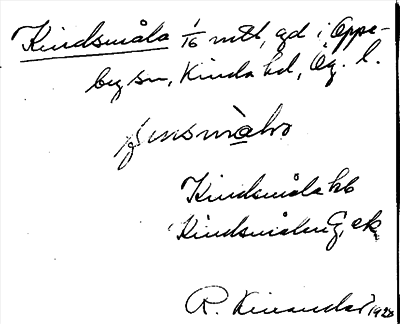 Kindsmåla 1/16 mtl, gd i Oppe-
by sn, Kinda hd, Ög. l.
Kindsmåla hb
Kindsmålen G, ek
R. Kinander 1928